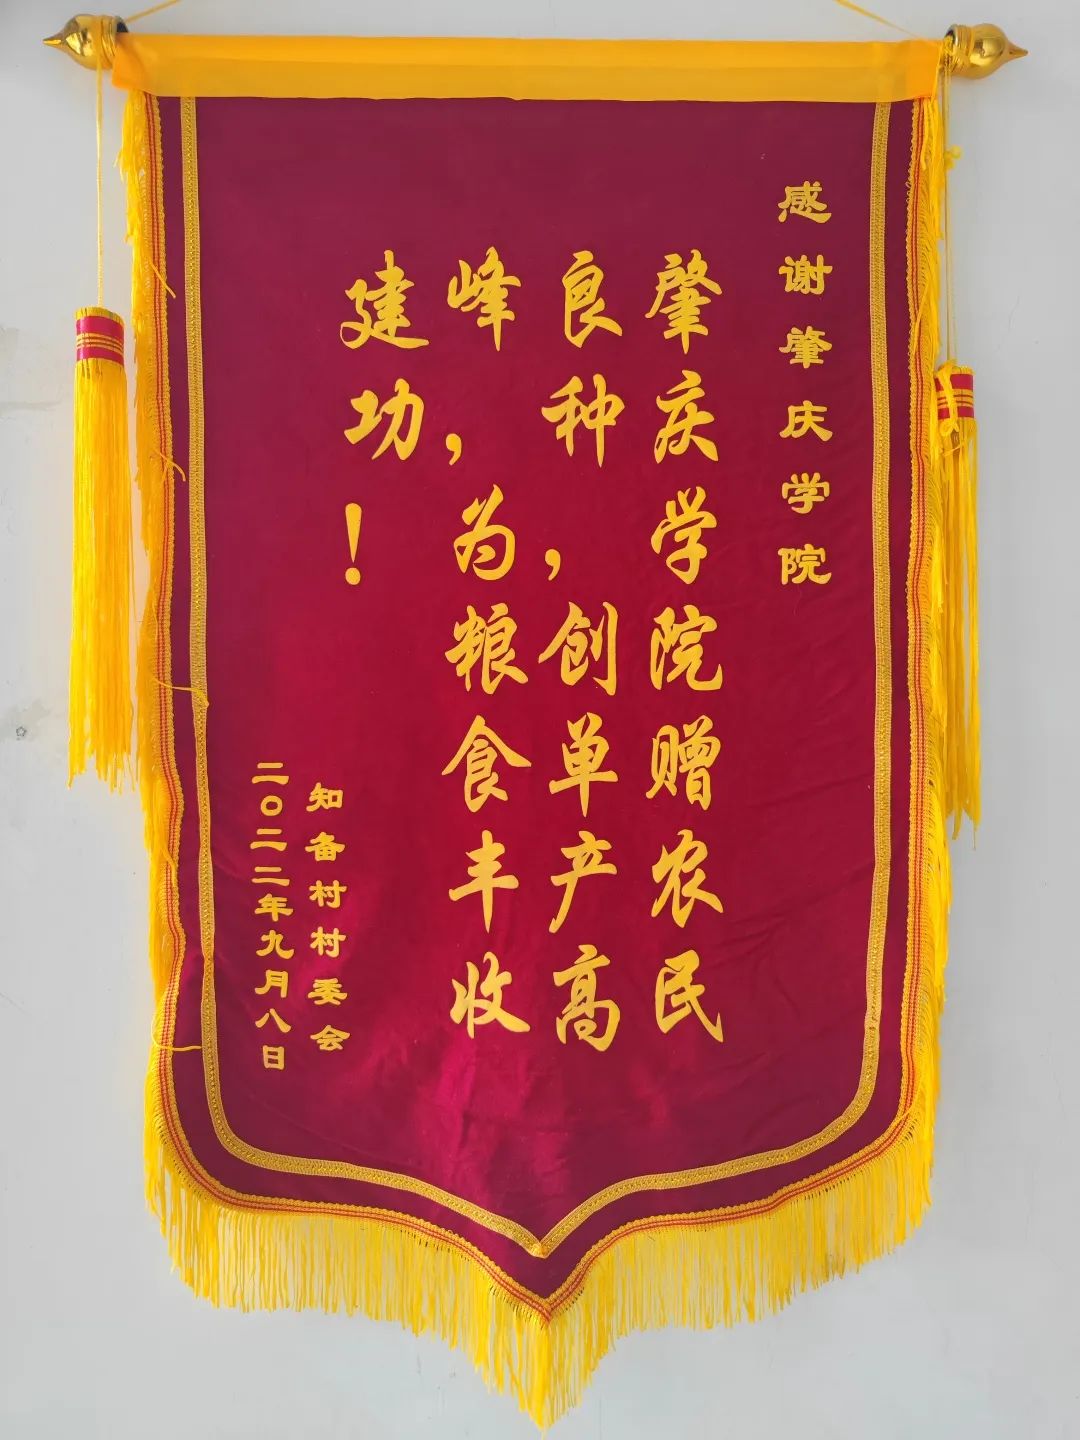 感谢肇庆学院
肇庆学院赠农民
良种，创单产高
峰，为粮食丰收
建功！
知备村村委会
二〇二二年九月八日